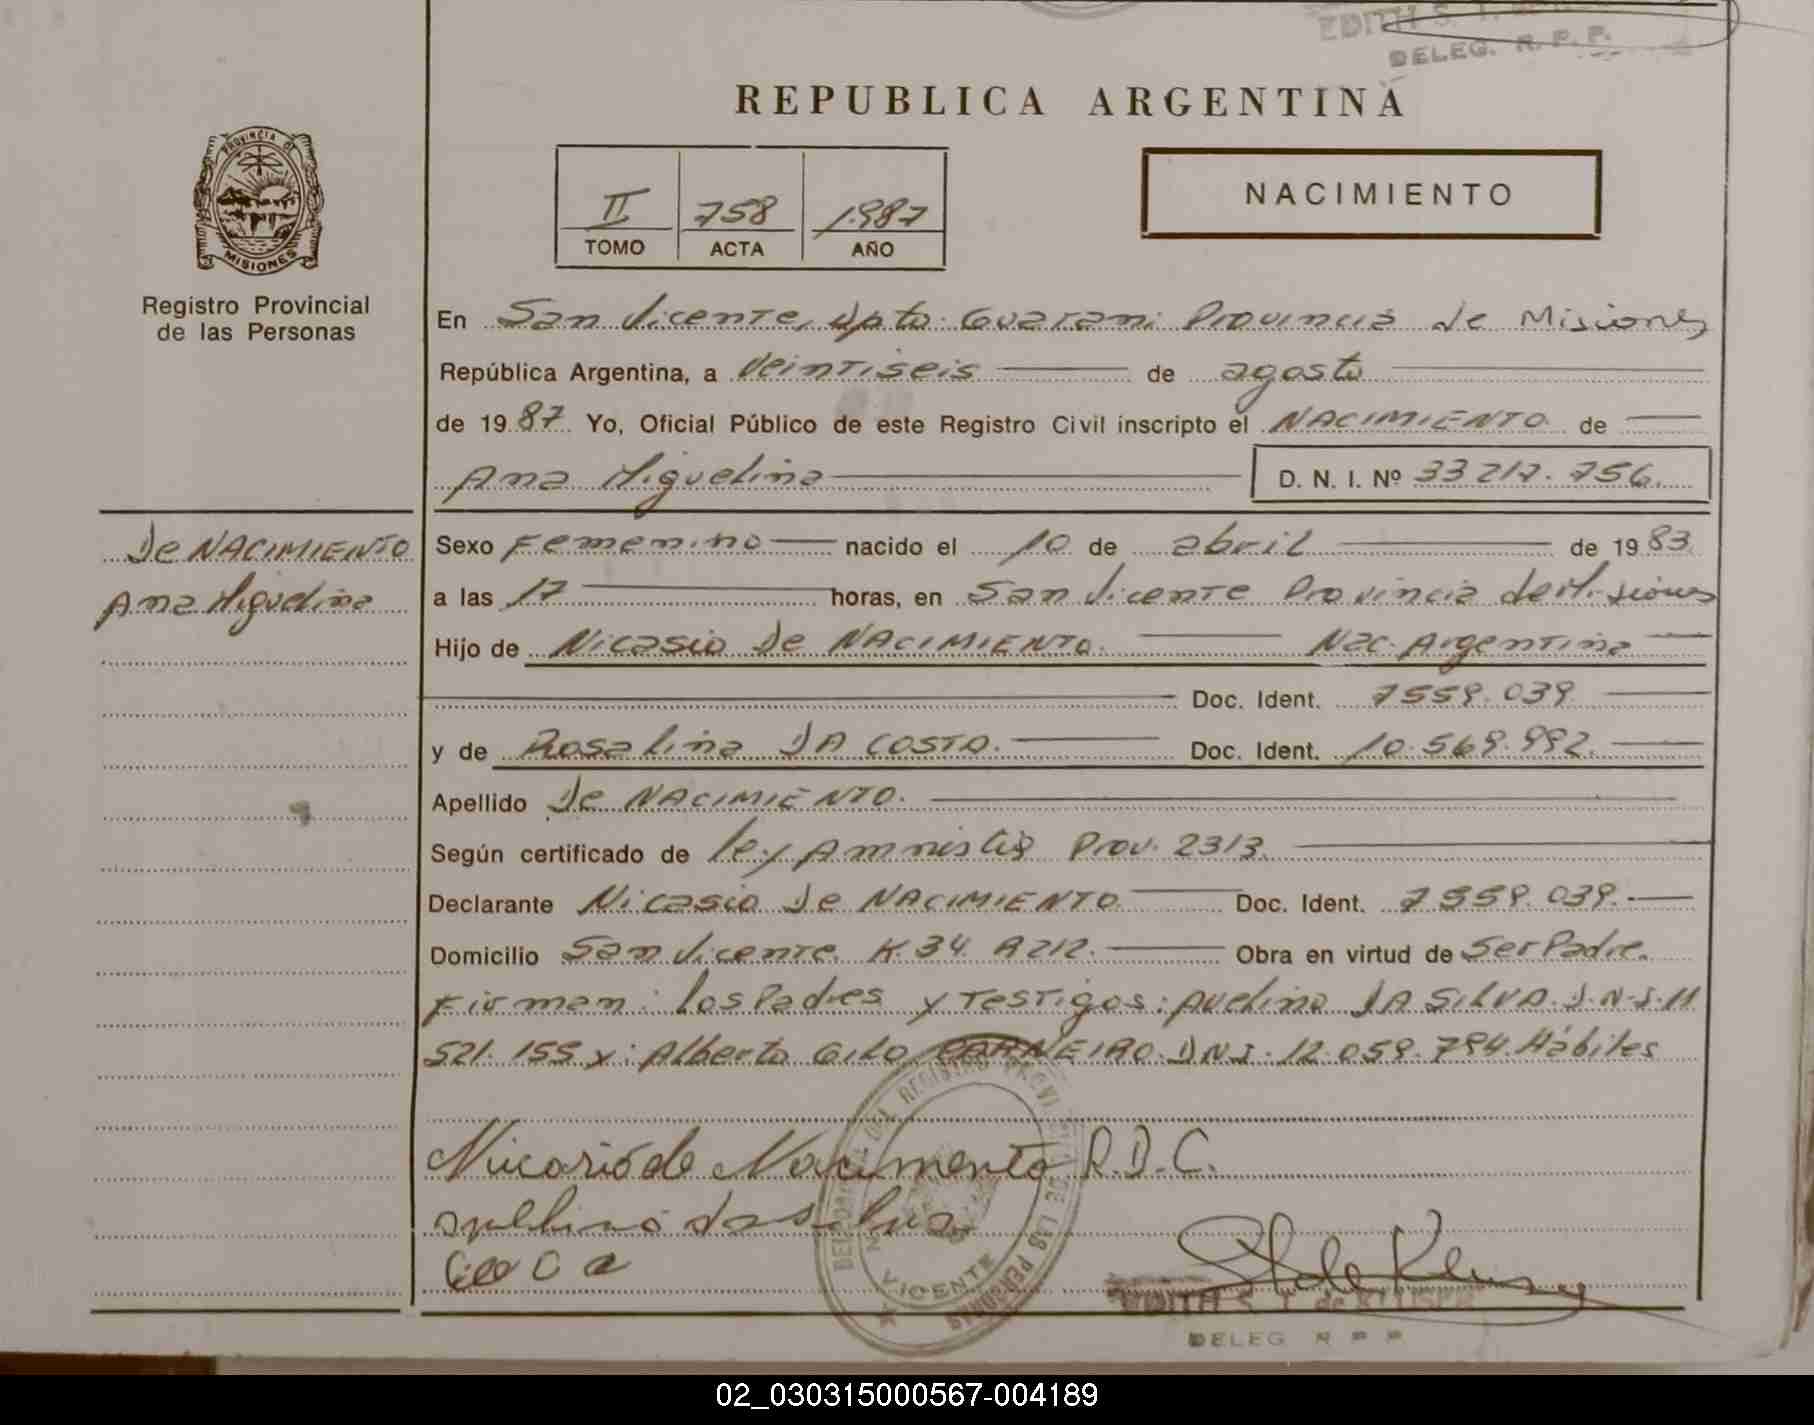 EDITH S. T. de
DELEG. R. P. P.
REPUBLICA ARGENTINA
PROVINCIA DE
MISIONES
Registro Provincial
de las Personas
II 758 1987
TOMO ACTA AÑO
NACIMIENTO
En San Vicente, Dpto. Guarani Provincia de Misiones
República Argentina, a Veintiseis de agosto
de 1987 Yo, Oficial Público de este Registro Civil inscripto el NACIMIENTO de
Ana Miguelina D. N. I. Nº 33 217. 756.
De NACIMIENTO
Ana Miguelina
Sexo Femenino nacido el 10 de abril de 1983
a las 17 horas, en San Vicente Provincia de Misiones
Hijo de Nicasio De NACIMIENTO. Nac. Argentina
Doc. Ident. 7559.039
y de Rosalina DA COSTA. Doc. Ident. 10.569.992.
Apellido De NACIMIENTO.
Según certificado de ley Amnistia Prov. 2313.
Declarante Nicasio De NACIMIENTO Doc. Ident. 7559.039.
Domicilio San Vicente K. 34 R212. Obra en virtud de Ser Padre.
Firman: los Padres y Testigos: Avelino DA SILVA. D.N.I. 11
521.155 y: Alberto Gilo CARNEIRO. DNI. 12.059.794. Hábiles
Nicasio de Nacimento R.D.C.
da Silva
DELEGACION DEL REGISTRO PROVINCIAL DE LAS PERSONAS
VICENTE
EDITH S. T. de KLUSER
DELEG R P P
02_030315000567-004189